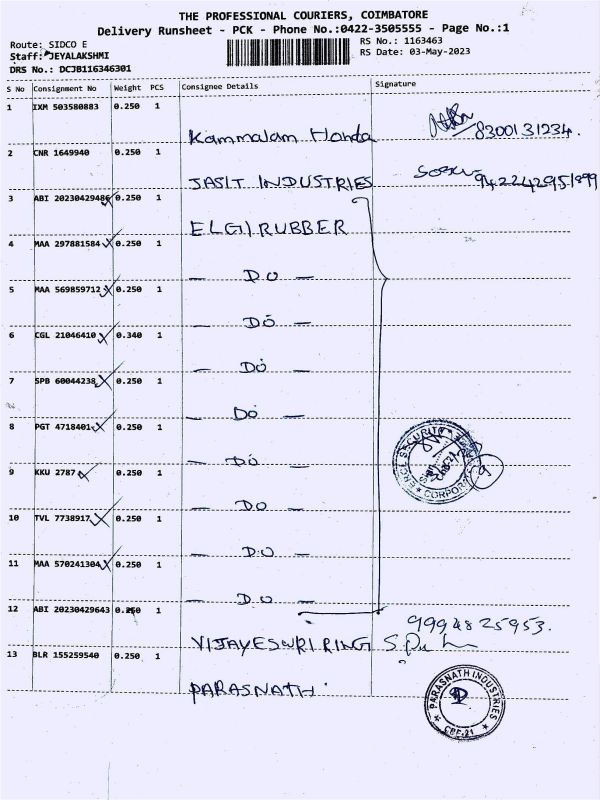 THE PROFESSIONAL COURIERS, COIMBATORE
Delivery Runsheet - PCK - Phone No.:0422-3505555 - Page No.:1
Route: SIDCO E
Staff: JEYALAKSHMI
DRS No.: DCJB116346301
RS No.: 1163463
RS Date: 03-May-2023
S No Consignment No Weight PCS Consignee Details Signature
1 IXM 503580883 0.250 1
Kammalam Honda 8300131234.
2 CNR 1649940 0.250 1
JASIT INDUSTRIES
3 ABI 20230429486 0.250 1
ELGI RUBBER
4 MAA 297881584 0.250 1
— DO —
5 MAA 569859712 0.250 1
— DO —
6 CGL 21046410 0.340 1
— DO —
7 SPB 60044238 0.250 1
— DO —
8 PGT 4718401 0.250 1
— DO —
9 KKU 2787 0.250 1
— DO —
10 TVL 7738917 0.250 1
— DO —
11 MAA 570241304 0.250 1
— DO —
12 ABI 20230429643 0.250 1
9994825953.
VIJAYESWRI RING
13 BLR 155259540 0.250 1
PARASNATH
PARASNATH INDUSTRIES
CBE-21